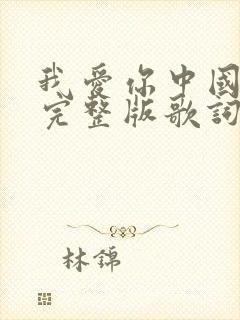 我愛你中國
完整版歌詞
林錦